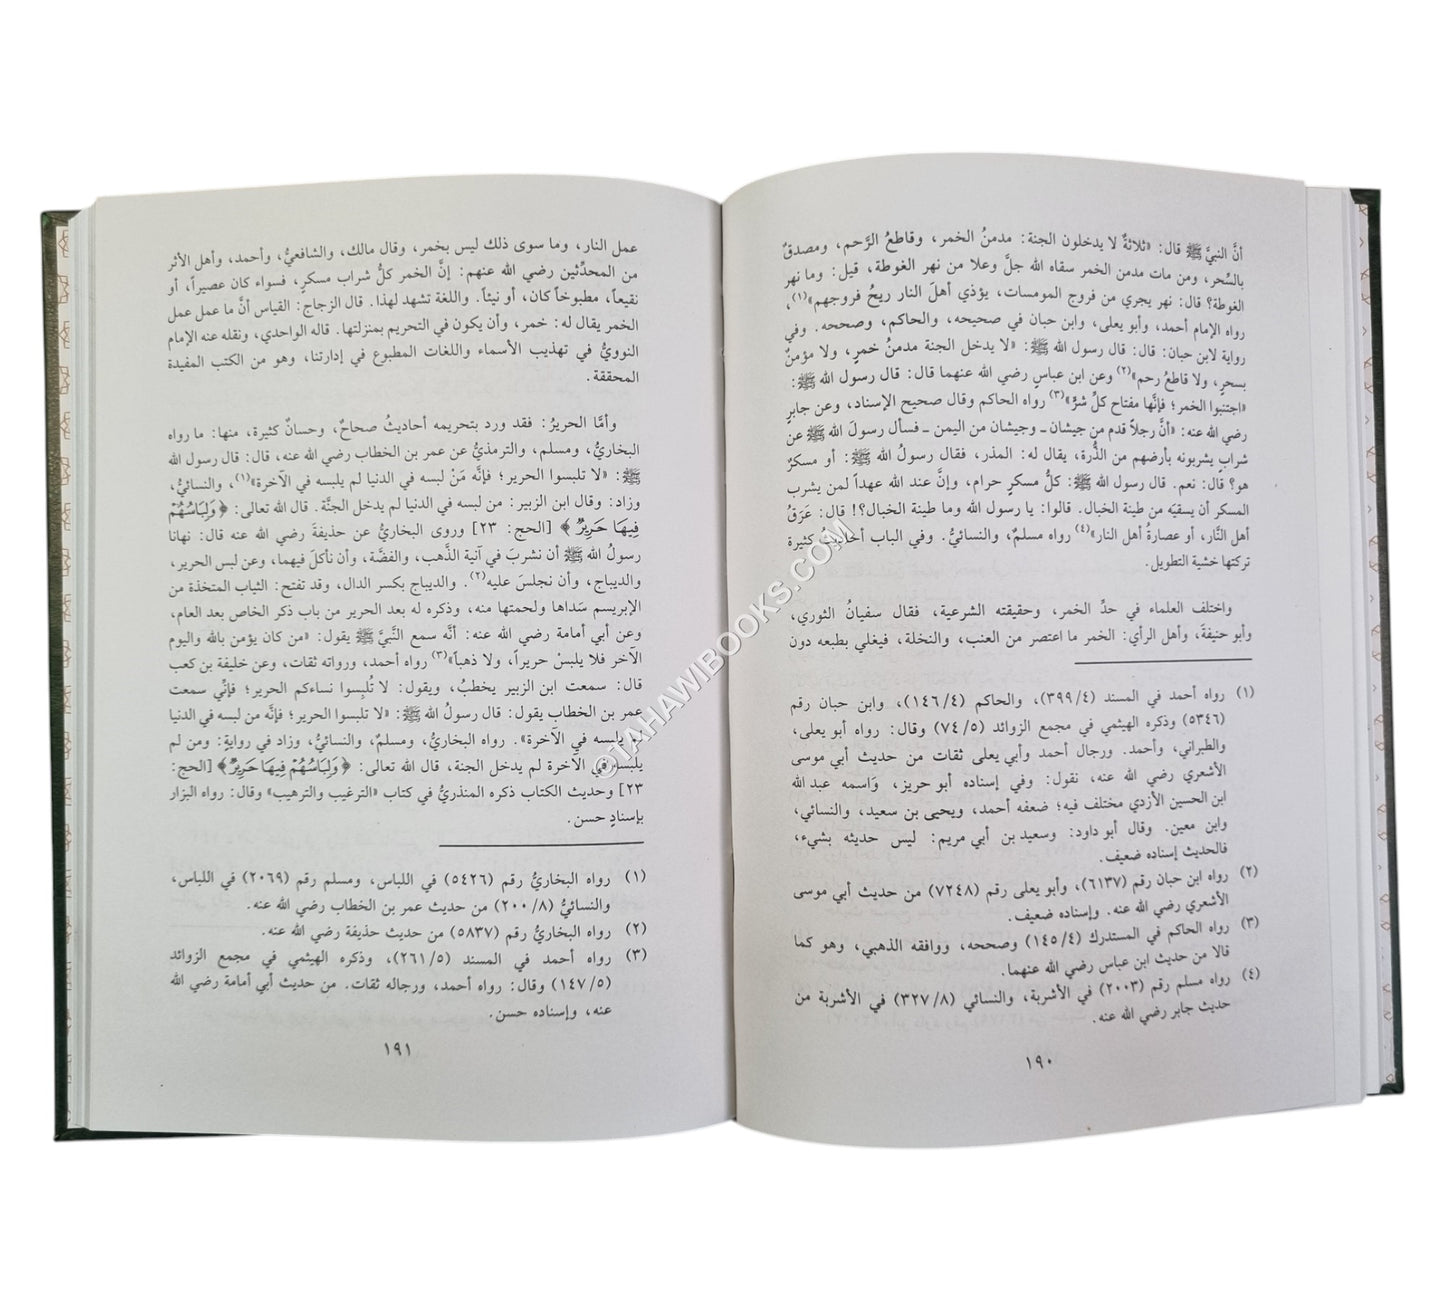 أنَّ النبيَّ ﷺ قال: «ثلاثةٌ لا يدخلون الجنة: مدمنُ الخمر، وقاطعُ الرَّحم، ومصدقٌ
بالسِّحر، ومن مات مدمن الخمر سقاه الله جلَّ وعلا من نهر الغوطة، قيل: وما نهر
الغوطة؟ قال: نهر يجري من فروج المومسات، يؤذي أهلَ النار ريحُ فروجهم»(١)،
رواه الإمام أحمد، وأبو يعلى، وابن حبان في صحيحه، والحاكم، وصححه. وفي
رواية لابن حبان: قال: قال رسول الله ﷺ: «لا يدخل الجنة مدمنُ خمرٍ، ولا مؤمنٌ
بسحرٍ، ولا قاطعُ رحم»(٢) وعن ابن عباسٍ رضي الله عنهما قال: قال رسول الله ﷺ:
«اجتنبوا الخمر؛ فإنَّها مفتاح كلِّ شرٍّ»(٣) رواه الحاكم وقال صحيح الإسناد، وعن جابرٍ
رضي الله عنه: «أنَّ رجلاً قدم من جيشان ـ وجيشان من اليمن ـ فسأل رسولَ الله ﷺ عن
شرابٍ يشربونه بأرضهم من الذُّرة، يقال له: المذر، فقال رسولُ الله ﷺ: أو مسكرٌ
هو؟ قال: نعم. قال رسول الله ﷺ: كلُّ مسكرٍ حرام، وإنَّ عند الله عهداً لمن يشرب
المسكر أن يسقيَه من طينة الخبال. قالوا: يا رسول الله وما طينة الخبال؟! قال: عَرَقُ
أهل النَّار، أو عصارةُ أهل النار»(٤) رواه مسلمٌ، والنسائيُّ. وفي الباب أحاديثُ كثيرة
تركتها خشية التطويل.
واختلف العلماء في حدِّ الخمر، وحقيقته الشرعية، فقال سفيانُ الثوري،
وأبو حنيفةَ، وأهل الرأي: الخمر ما اعتصر من العنب، والنخلة، فيغلي بطبعه دون
(١) رواه أحمد في المسند (٣٩٩/٤)، والحاكم (١٤٦/٤)، وابن حبان رقم
(٥٣٤٦) وذكره الهيثمي في مجمع الزوائد (٧٤/٥) وقال: رواه أبو يعلى،
والطبراني، وأحمد. ورجال أحمد وأبي يعلى ثقات من حديث أبي موسى
الأشعري رضي الله عنه، نقول: وفي إسناده أبو حريز، وَاسمه عبد الله
ابن الحسين الأزدي مختلف فيه؛ ضعفه أحمد، ويحيى بن سعيد، والنسائي،
وابن معين. وقال أبو داود: وسعيد بن أبي مريم: ليس حديثه بشيء،
فالحديث إسناده ضعيف.
(٢) رواه ابن حبان رقم (٦١٣٧)، وأبو يعلى رقم (٧٢٤٨) من حديث أبي موسى
الأشعري رضي الله عنه. وإسناده ضعيف.
(٣) رواه الحاكم في المستدرك (١٤٥/٤) وصححه، ووافقه الذهبي، وهو كما
قالا من حديث ابن عباس رضي الله عنهما.
(٤) رواه مسلم رقم (٢٠٠٣) في الأشربة، والنسائي (٣٢٧/٨) في الأشربة من
حديث جابر رضي الله عنه.
١٩٠
عمل النار، وما سوى ذلك ليس بخمر، وقال مالك، والشافعيُّ، وأحمد، وأهل الأثر
من المحدِّثين رضي الله عنهم: إنَّ الخمر كلُّ شراب مسكرٍ، فسواء كان عصيراً، أو
نقيعاً، مطبوخاً كان، أو نيئاً. واللغة تشهد لهذا. قال الزجاج: القياس أنَّ ما عمل عمل
الخمر يقال له: خمر، وأن يكون في التحريم بمنزلتها. قاله الواحدي، ونقله عنه الإمام
النوويُّ في تهذيب الأسماء واللغات المطبوع في إدارتنا، وهو من الكتب المفيدة
المحققة.
وأمَّا الحريرُ: فقد ورد بتحريمه أحاديثُ صحاحٌ، وحسانٌ كثيرة، منها: ما رواه
البخاريُّ، ومسلم، والترمذيُّ عن عمر بن الخطاب رضي الله عنه، قال: قال رسول الله
ﷺ: «لا تلبسوا الحرير؛ فإنَّه مَنْ لبسه في الدنيا لم يلبسه في الآخرة»(١)، والنسائيُّ،
وزاد: وقال ابن الزبير: من لبسه في الدنيا لم يدخل الجنَّة. قال الله تعالى: ﴿وَلِبَاسُهُمْ
فِيهَا حَرِيرٌ﴾ [الحج: ٢٣] وروى البخاريُّ عن حذيفةَ رضي الله عنه قال: نهانا
رسولُ الله ﷺ أن نشربَ في آنية الذَّهب، والفضَّة، وأن نأكلَ فيهما، وعن لبس الحرير،
والديباج، وأن نجلسَ عليه(٢). والديباج بكسر الدال، وقد تفتح: الثياب المتخذة من
الإبريسم سَداها ولحمتها منه، وذكره له بعد الحرير من باب ذكر الخاص بعد العام،
وعن أبي أمامة رضي الله عنه: أنَّه سمع النَّبيَّ ﷺ يقول: «من كان يؤمن بالله واليوم
الآخر فلا يلبسْ حريراً، ولا ذهباً»(٣) رواه أحمد، ورواته ثقات، وعن خليفة بن كعب
قال: سمعت ابن الزبير يخطبُ، ويقول: لا تُلبِسوا نساءكم الحرير؛ فإنِّي سمعت
عمر بن الخطاب يقول: قال رسولُ الله ﷺ: «لا تلبسوا الحرير؛ فإنَّه من لبسه في الدنيا
لم يلبسه في الآخرة». رواه البخاريُّ، ومسلمٌ، والنسائيُّ، وزاد في روايةٍ: ومن لم
يلبسه في الآخرة لم يدخل الجنة، قال الله تعالى: ﴿وَلِبَاسُهُمْ فِيهَا حَرِيرٌ﴾ [الحج:
٢٣] وحديث الكتاب ذكره المنذريُّ في كتاب «الترغيب والترهيب» وقال: رواه البزار
بإسنادٍ حسن.
(١) رواه البخاريُّ رقم (٥٤٢٦) في اللباس، ومسلم رقم (٢٠٦٩) في اللباس،
والنسائيُّ (٢٠٠/٨) من حديث عمر بن الخطاب رضي الله عنه.
(٢) رواه البخاريُّ رقم (٥٨٣٧) من حديث حذيفة رضي الله عنه.
(٣) رواه أحمد في المسند (٢٦١/٥)، وذكره الهيثمي في مجمع الزوائد
(١٤٧/٥) وقال: رواه أحمد، ورجاله ثقات. من حديث أبي أمامة رضي الله
عنه، وإسناده حسن.
١٩١
©TAHAWIBOOKS.COM